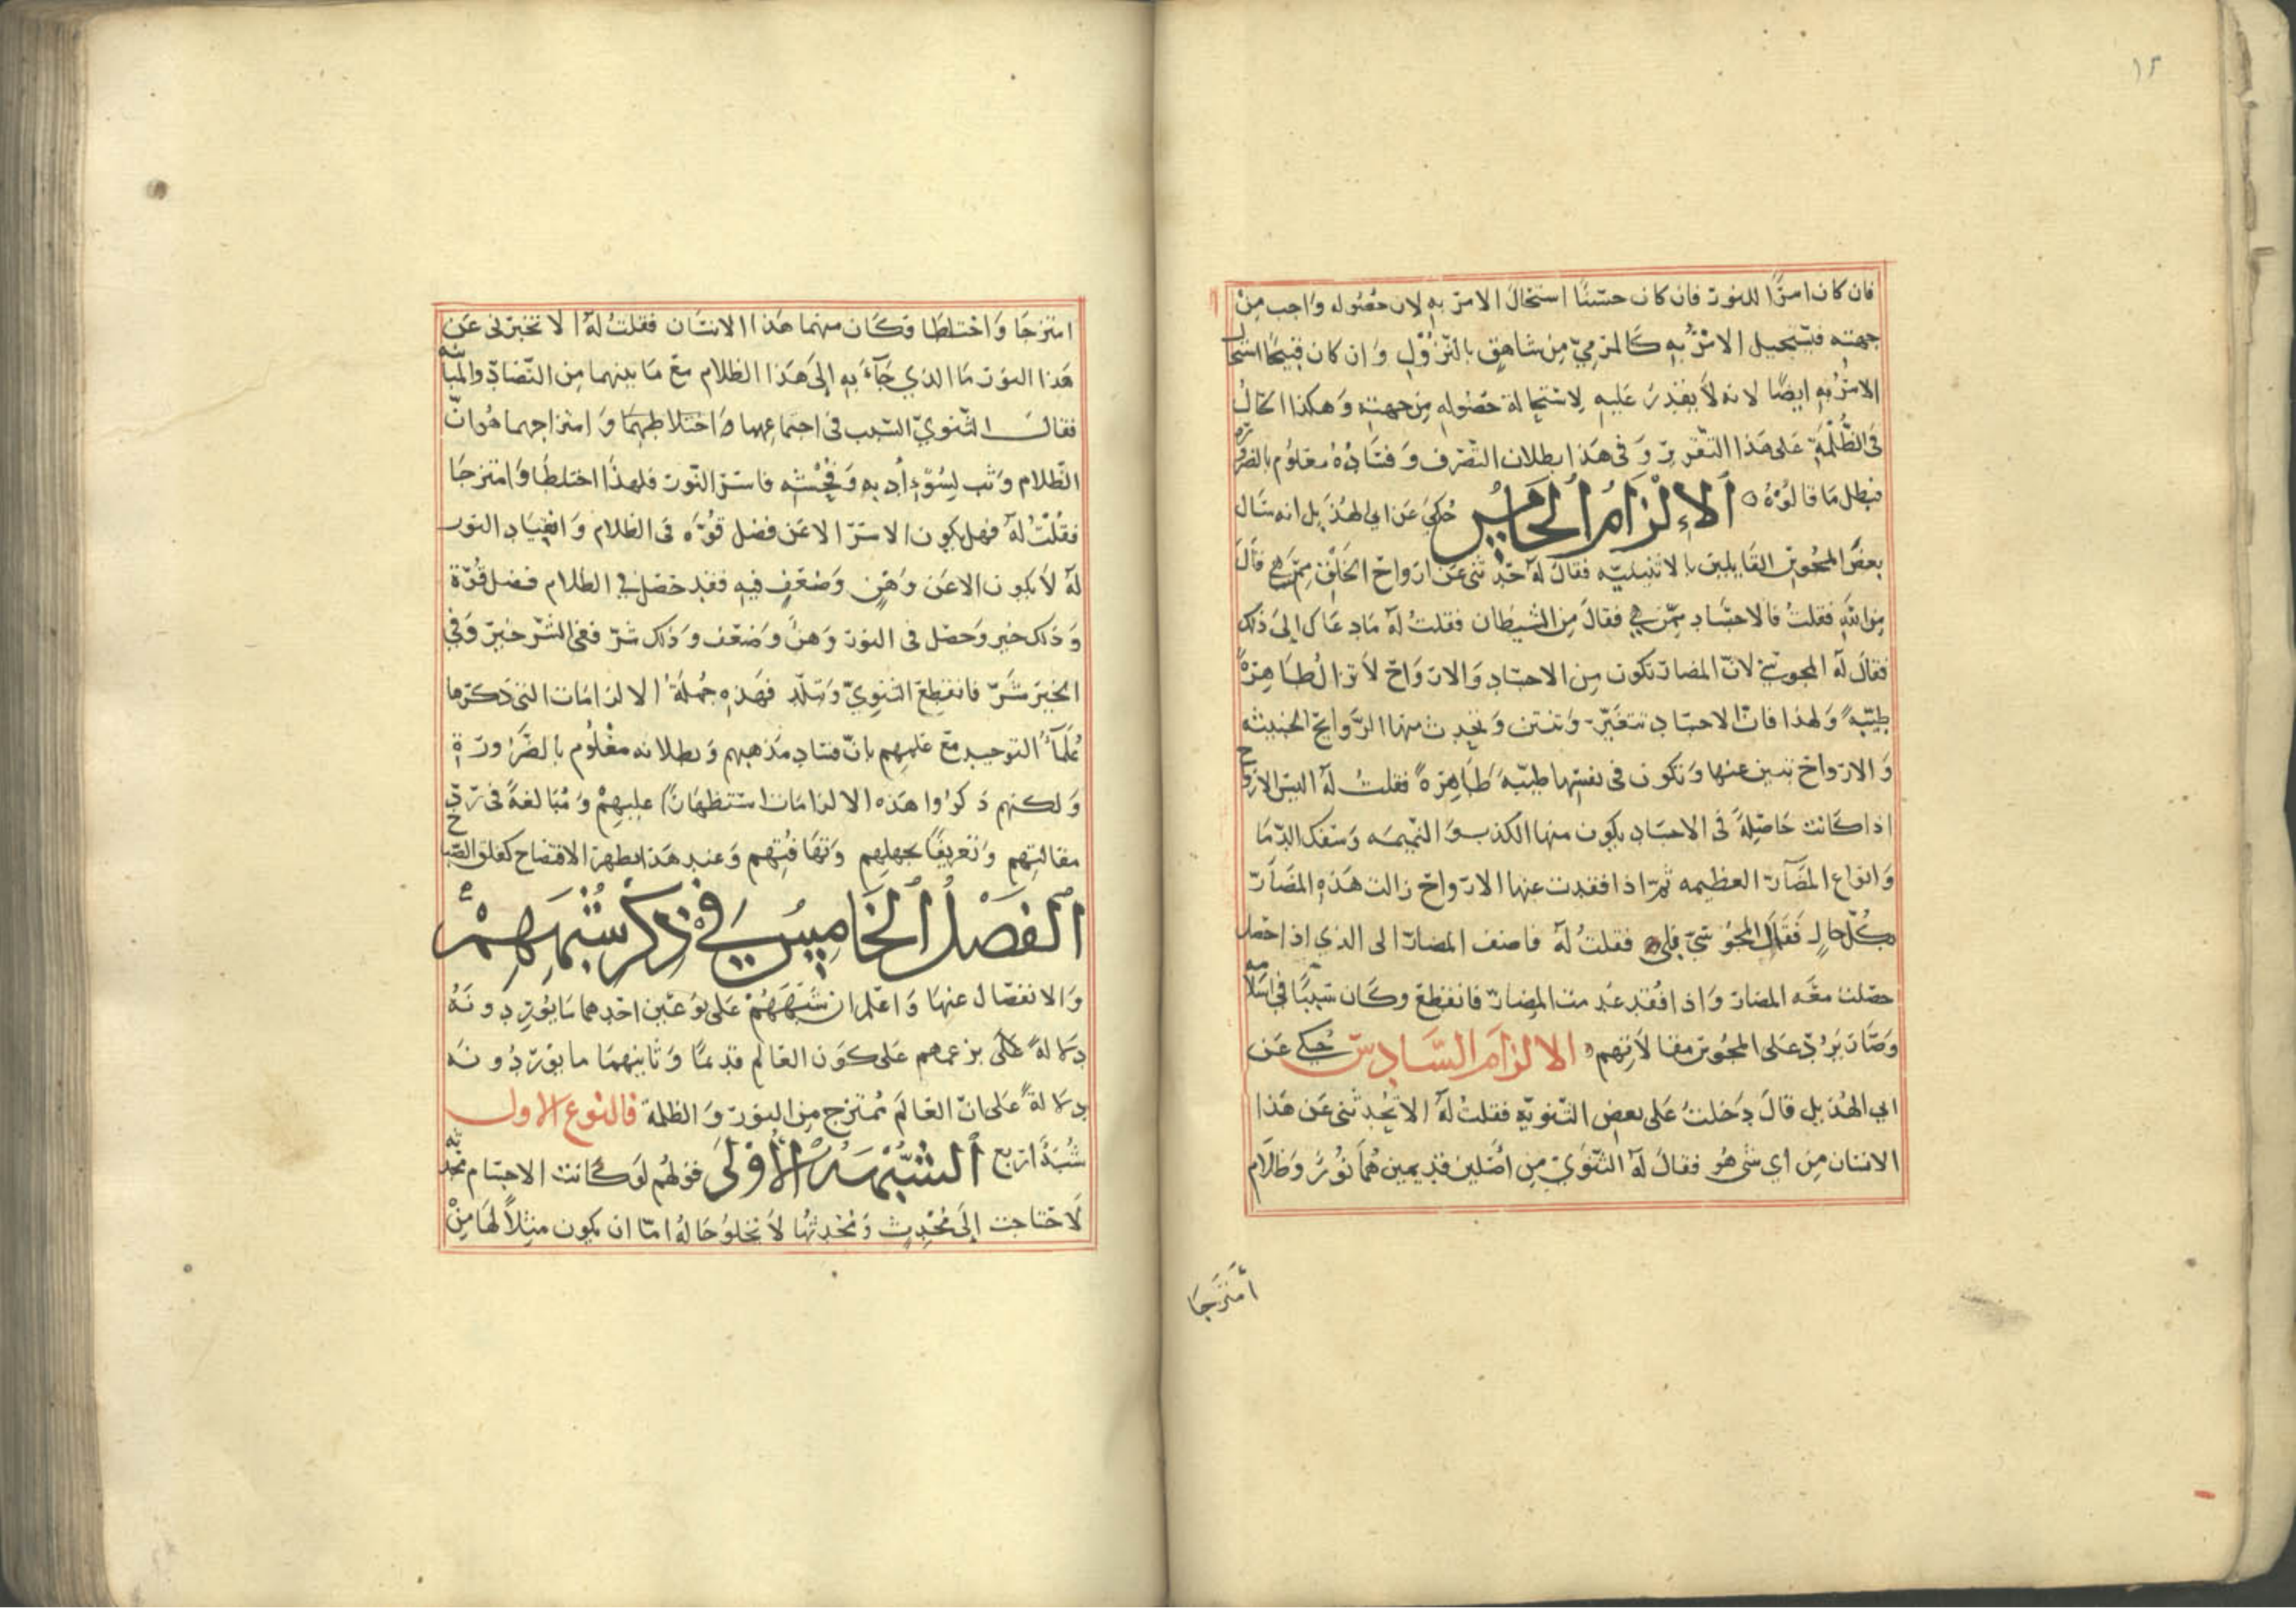 ١٢
فان كان امرًا للنور فان كان حسنًا استحال الامر به لان حصوله واجب من
جهته فيستحيل الامر به كالمرمي من شاهق بالنزول وان كان قبيحًا استحال
الامر به ايضًا لانه لا يقدر عليه لاستحالة حصوله من جهته وهكذا الحال
فى الظلمة على هذا التقرير وفى هذا بطلان التصرف وفساده معلوم بالضرورة
فبطل ما قالوه ٥ الالزام الخامس حُكي عن ابي الهذيل انه سال
بعض المجوس القايلين بالاثنينيه فقال له حدثنى عن ارواح الخلق ممن هي قال
من الله فقلت فالاجساد ممن هي فقال من الشيطان فقلت له ما دعاك الى ذلك
فقال له المجوسي لان المضار تكون من الاجساد والارواح لا تزال طاهرة
طيبة ولهذا فان الاجساد تتغير وتنتن وتحدث منها الروايح الخبيثه
والارواح تبين عنها وتكون فى نفسها طيبة طاهرة فقلت له اليس الارواح
اذا كانت حاصلة فى الاجساد يكون منها الكذب والنميمه وسفك الدما
وانواع المضآر العظيمه ثم اذا فقدت عنها الارواح زالت هذه المضآر
بكل حال فقال المجوسي بلى فقلت له فاضف المضار الى الذي اذا حصل
حصلت معه المضار واذا فُقد عدمت المضار فانقطع وكان سببًا في اسلامه
وصار يرد على المجوس مقالاتهم ٥ الالزام السادس حُكي عن
ابي الهذيل قال دخلت على بعض الثنويه فقلت له الا تُحدثنى عن هذا
الانسان من اي شي هو فقال له الثنوي من اصلين قديمين هُما نور وظلام
امتزجا
امتزجا واختلطا فكان منهما هذا الانسان فقلت له الا تخبرنى عن
هذا النور ما الذي جآء به الى هذا الظلام مع ما بينهما من التضاد والمباينه
فقال الثنوي السبب فى اجتماعهما واختلاطهما وامتزاجهما هو ان
الظلام وثب لسُوء أدبه وفحشه فاستر النور فلهذا اختلطا وامتزجا
فقلت له فهل يكون الاستر الا عن فضل قوة فى الظلام وانقياد النور
له لا يكون الا عن وهن وضعف فيه فقد حصل في الظلام فضل قُوّة
وذلك خير وحصل فى النور وهن وضعف وذلك شر ففى الشر خير وفي
الخير شر فانقطع الثنوي وتبلد فهذه جملة الالزامات التى ذكرها
علمآء التوحيد مع علمهم بان فساد مذهبهم وبطلانه معلوم بالضرورة
ولكنهم ذكروا هذه الالزامات استظهارًا عليهم ومبالغة فى رد
مقالتهم وتعريفًا بجهلهم وتهافتهم وعند هذا يظهر الافتضاح كفلق الصبح
الفصل الخامس في ذكر شبههم
والانفصال عنها واعلم ان شبههم على نوعين احدهما ما يوردونه
دلالة على زعمهم على كون العالم قديمًا وثانيهما ما يوردونه
دلالة على ان العالم ممتزج من النور والظلمة فالنوع الاول
شُبهٌ اربع الشبهة الاولى قولهم لو كانت الاجسام محدثه
لاحتاجت الى محدث ومحدثها لا يخلو حاله امّا ان يكون مثلًا لها من